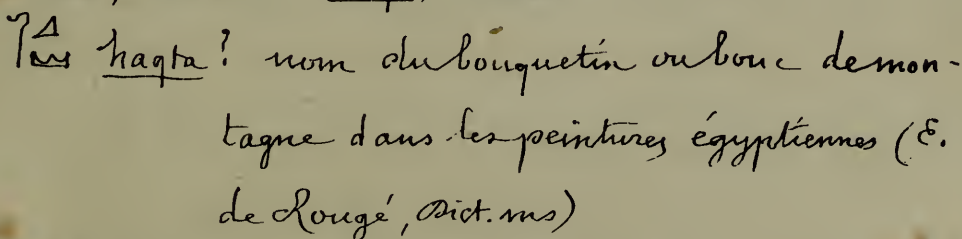 haqta? nom du bouquetin ou bouc de mon-
tagne dans les peintures égyptiennes (E.
de Rougé, Dict. ms)